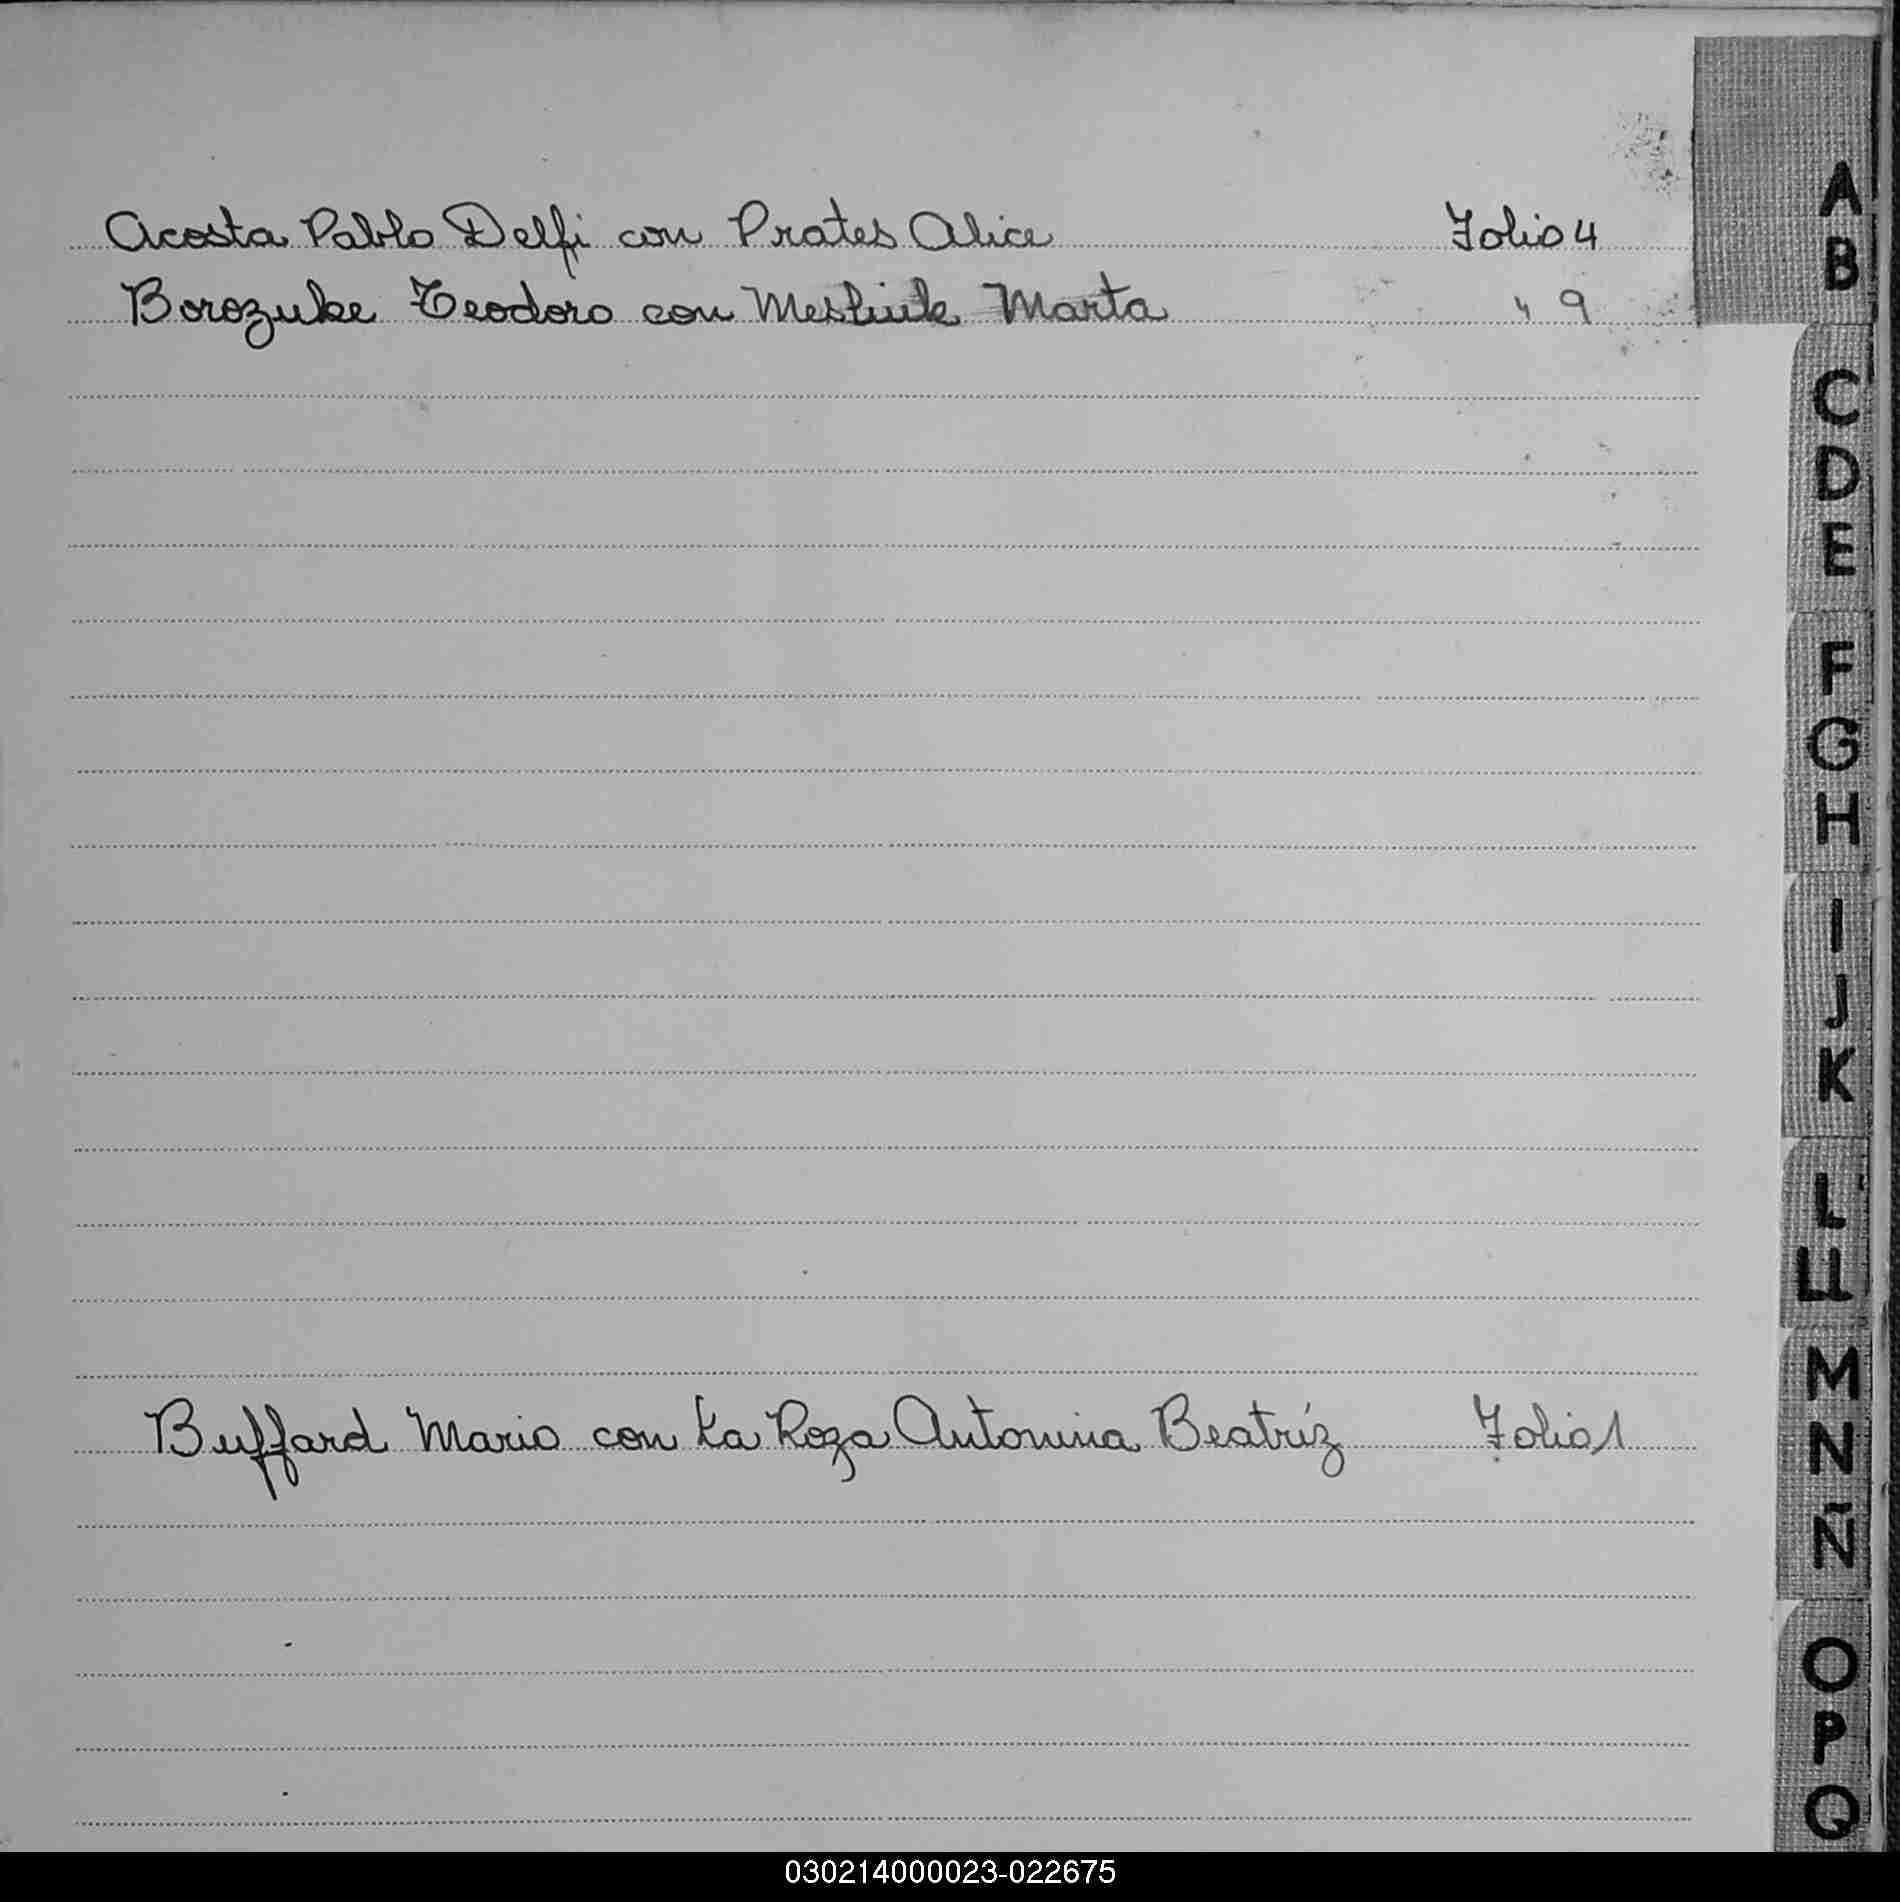 Acosta Pablo Delfi con Prates Alice Folio 4
Borozuke Teodoro con Marta " 9
Buffard Mario con La Roza Antonina Beatríz Folio 1
A
B
C
D
E
F
G
H
I
J
K
L
LL
M
N
Ñ
O
P
Q
030214000023-022675